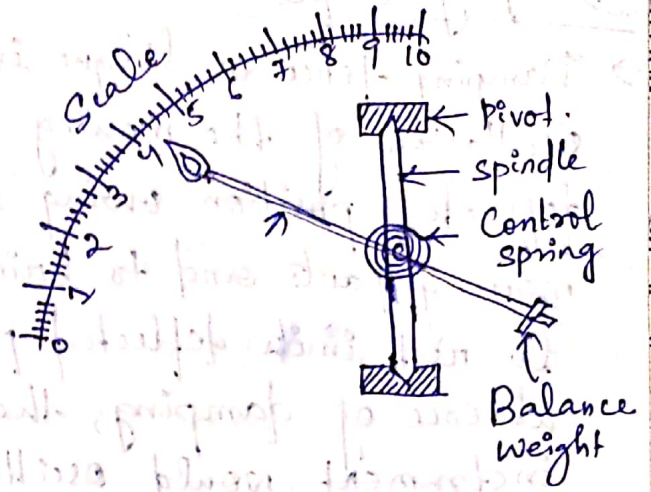 Scale
0
1
2
3
4
5
6
7
8
9
10
Pivot.
spindle
Control
spring
Balance
weight